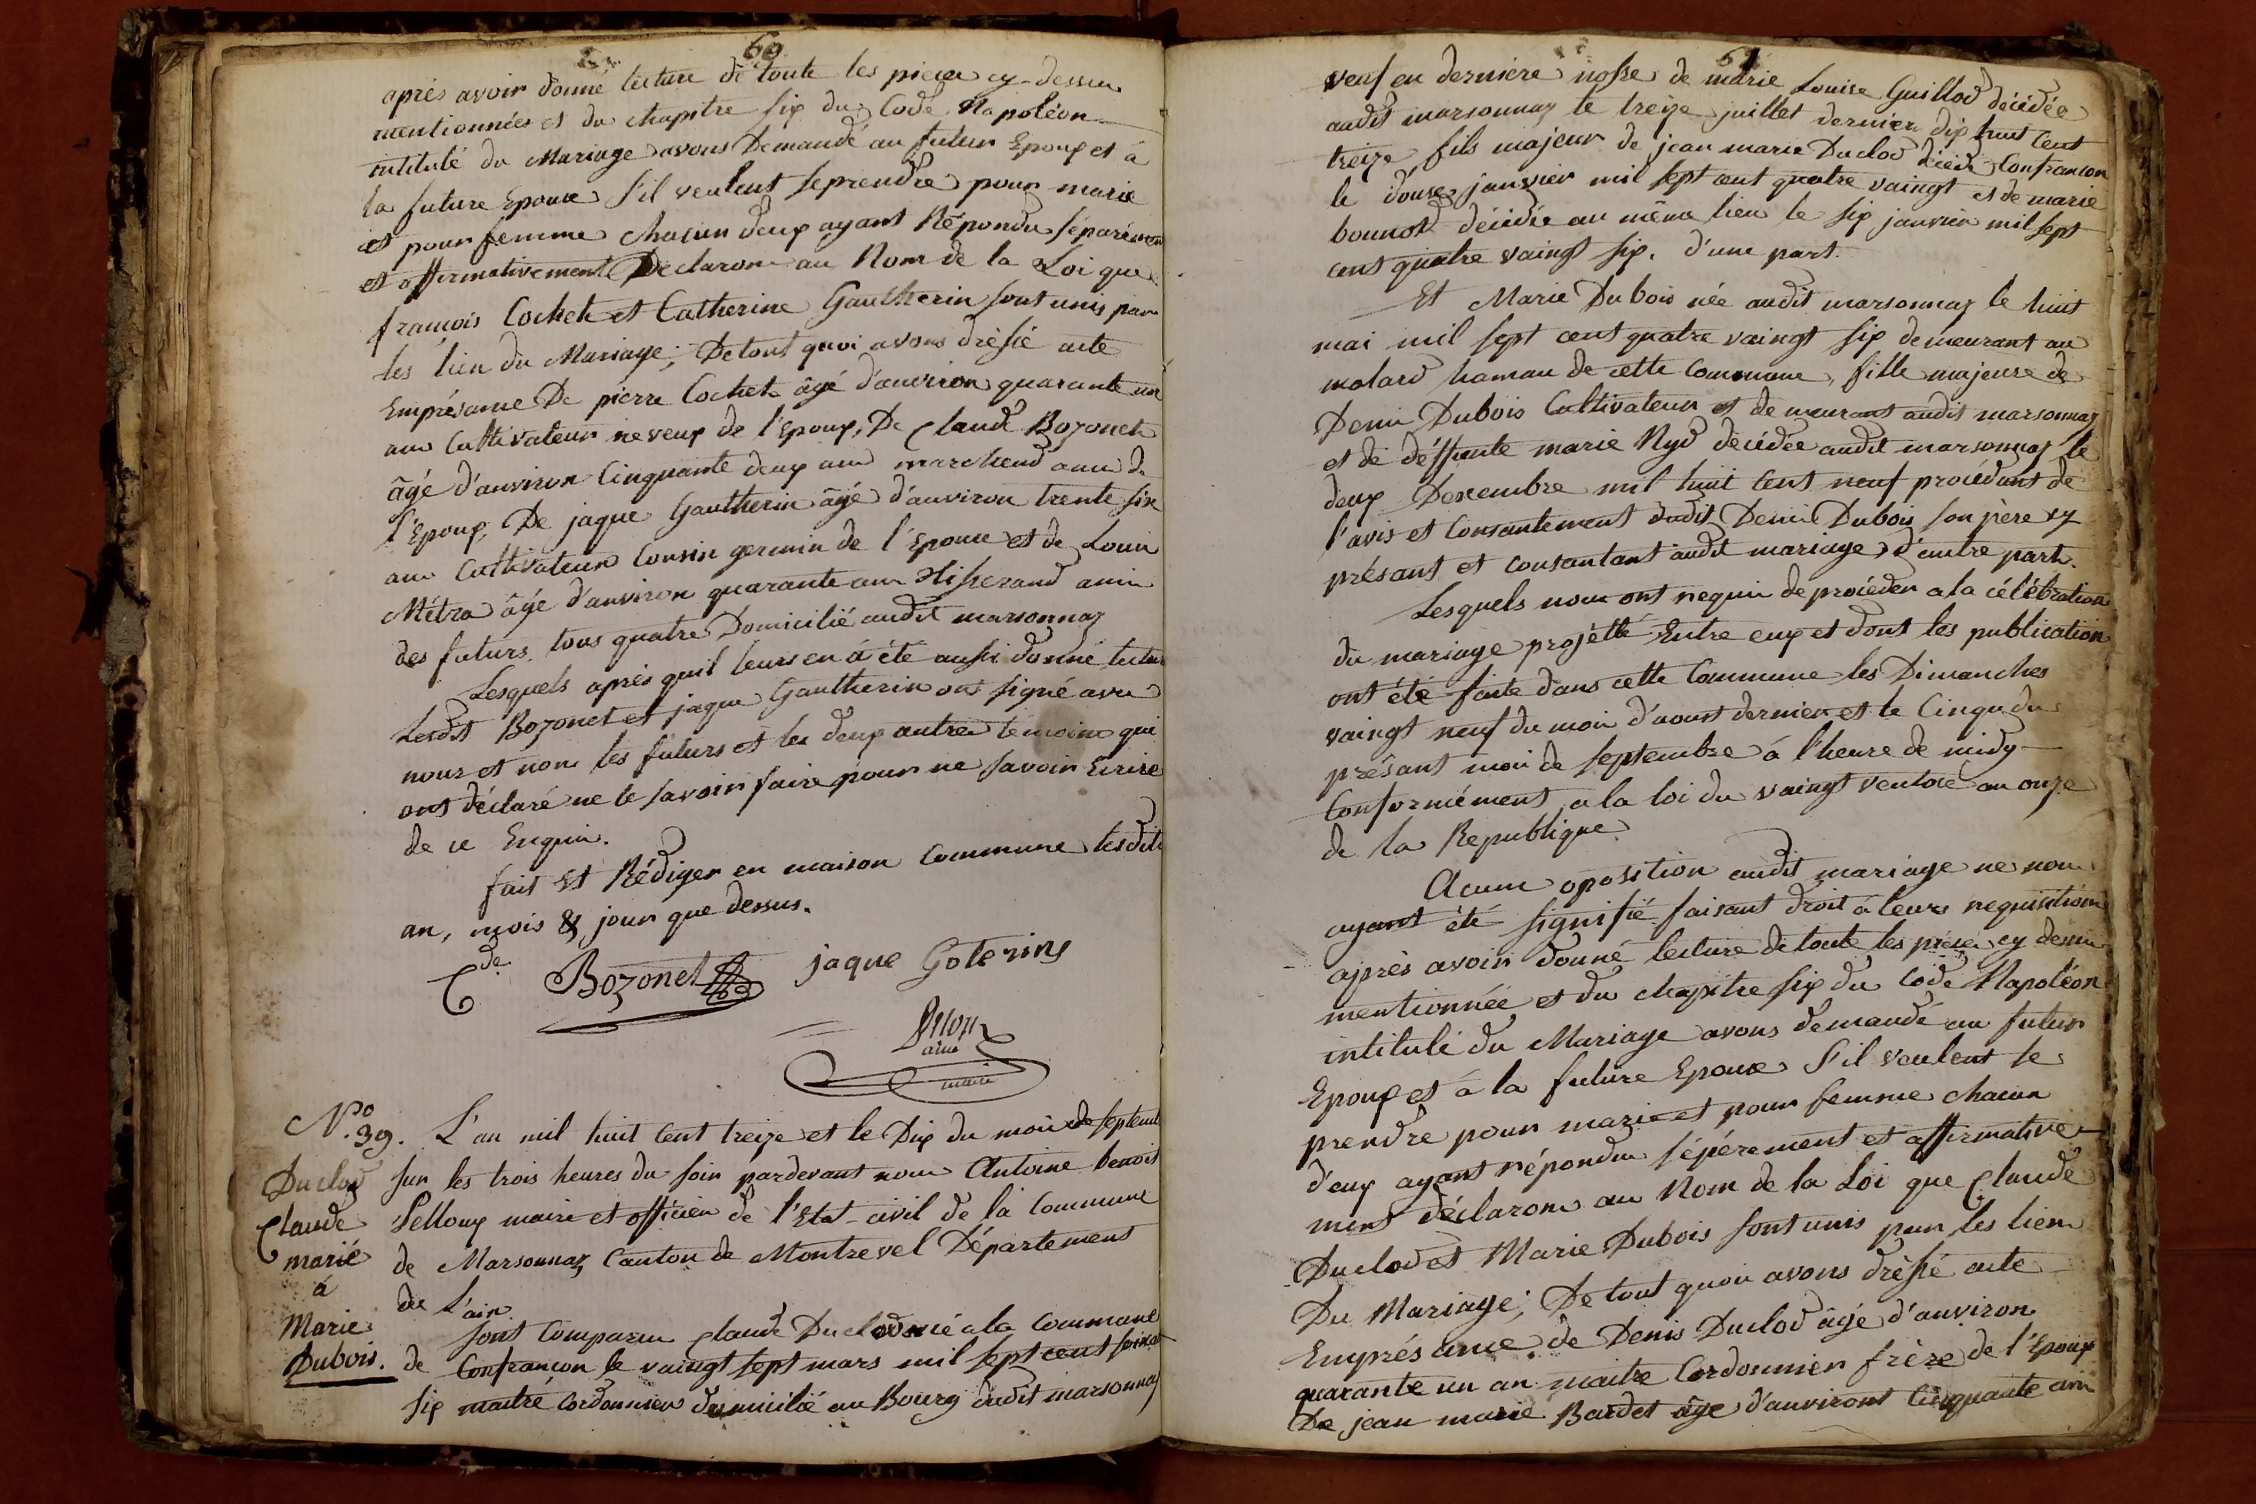 60
après avoir donné lecture de toute les pieces cy-dessus
mentionnées et du chapitre six du Code Napoléon
intitulé du Mariage avons Demandé au futur Epoux et à
la future Epouse s'il veulent se prendre pour marie
et pour femme chacun d'eux ayant Répondu séparément
et affirmativement Déclarons au Nom de la Loi que
françois Cochet et Catherine Gautherin sont unis par
les lien du Mariage; De tout quoi avons dréssé acte
Emprésance De pierre Cochet âgé d'anviron quarante un
ans Cultivateur neveux de l'Epoux, De Claude Bozonet
âgé d'anviron Cinquante deux ans marchend ami de
l'Epoux, De jaque Gautherin âgé d'anviron trente six
ans Cultivateur Cousin germin de l'Epouse et de Louis
Métra âgé d'anviron quarante ans Tisserand ami
des futurs, tous quatre Domicilié audit marsonnaz
Lesquels après quil leurs en à été aussi donné lecture
Lesdit Bozonet et jaque Gautherin ont signé avec
nous et non les futurs et les deux autres témoins qui
ont déclaré ne le savoir faire pour ne savoir Ecrire
de ce Enquis.
fait et Rédiger en maison Commune lesdits
an, mois & jour que dessus.
Cde Bozonet jaque Goterins
maire
N.o 39. L'an mil huit Cent treize et le Dix du mois de septembre
Duclod sur les trois heures du soir pardevant nous Antoine benoit
Claude Pelloux maire et officier de l'Etat-civil de la Commune
marié de Marsonnaz, Canton de Montrevel Département
à de L'ain
Marie sont Comparu Claude Duclod né a la Commune
Dubois. de Confrançon le vaingt sept mars mil sept cent soixante
six maitre Cordonnier domicilié au Bourg dudit marsonnaz
61
veuf en derniere nosse de marie Louise Guillod décédée
audit marsonnaz le treize juillet dernier dix huit Cent
treize fils majeur de jean marie Duclod décédé Confrancon
le douse janvier mil sept cent quatre vaingt et de marie
bounot décédée au même lieu le six janvier mil sept
cent quatre vaingt six. d'une part.
Et Marie Dubois née audit marsonnaz le huit
mai mil sept cent quatre vaingt six demeurant au
molard hamau de cette Commune, fille majeure de
Denis Dubois Cultivateur et demeurant audit marsonnaz
et de déffunte marie Nyd décédée audit marsonnaz le
deux Dexembre mil huit Cent neuf procédant de
l'avis et Consantement dudit Denis Dubois son père cy
présant et consantant audit mariage d'autre part.
Lesquels nous ont requis de procéder a la célébration
du mariage projetté Entre eux et dont les publication
ont été faite dans cette Commune les Dimanches
vaingt neuf du mois d'aoust dernier et le Cinqu du
présant mois de septembre à l'heure de midy
Conformément, a la loi du vaingt ventose an onze
de la Republique.
Acune oposition audit mariage ne nous
ayant été signifié faisant droit à leurs requisition
après avoir donné lecture de toute les pièces cy dessus
mentionnée et du chapitre six du Code Napoléon
intitulé du Mariage avons demandé au futur
Epoux et à la future Epouse s'il veulent se
prendre pour marie et pour femme chacun
d'eux ayant répondu sépérement et affirmative
ment déclarons au Nom de la Loi que Claude
Duclod et Marie Dubois sont unis par les liens
Du Mariage; De tout quoi avons dréssé acte
Emprésance de Denis Duclod âgé d'anviron
quarante un an maitre Cordonnier frère de l'Epoux
De jean marie Bardet âge d'anviront Cinquante ans